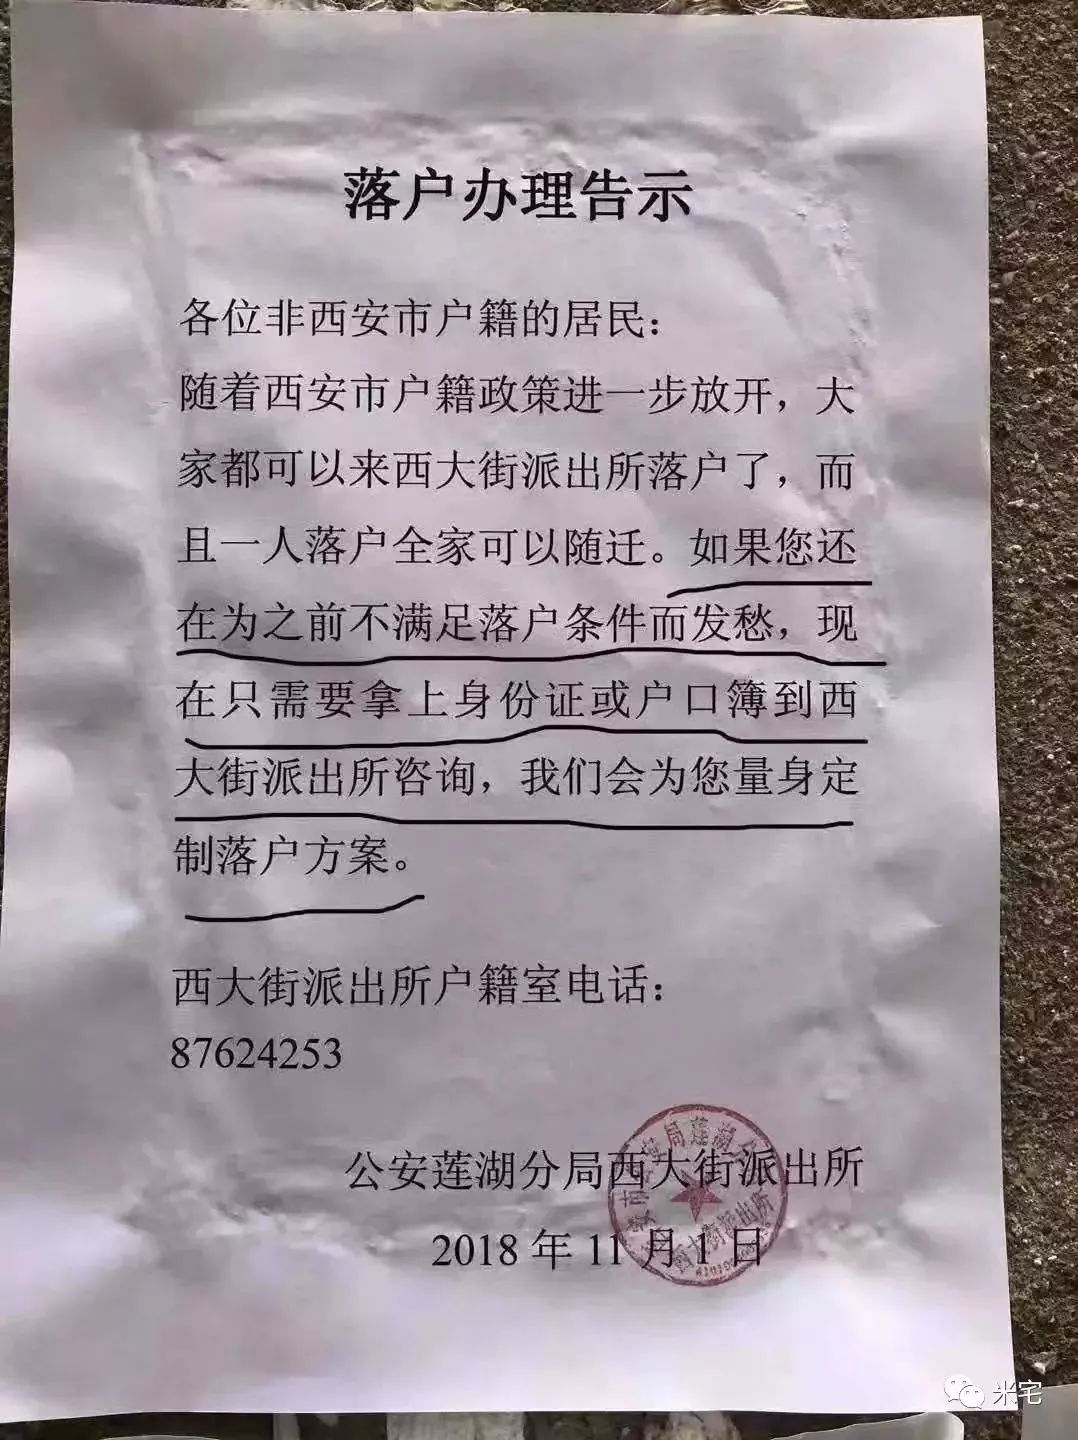 落户办理告示
各位非西安市户籍的居民：
随着西安市户籍政策进一步放开，大
家都可以来西大街派出所落户了，而
且一人落户全家可以随迁。如果您还
在为之前不满足落户条件而发愁，现
在只需要拿上身份证或户口簿到西
大街派出所咨询，我们会为您量身定
制落户方案。
西大街派出所户籍室电话：
87624253
公安莲湖分局西大街派出所
2018 年 11 月 1 日
安市公安局莲湖分
西大街派出所
米宅